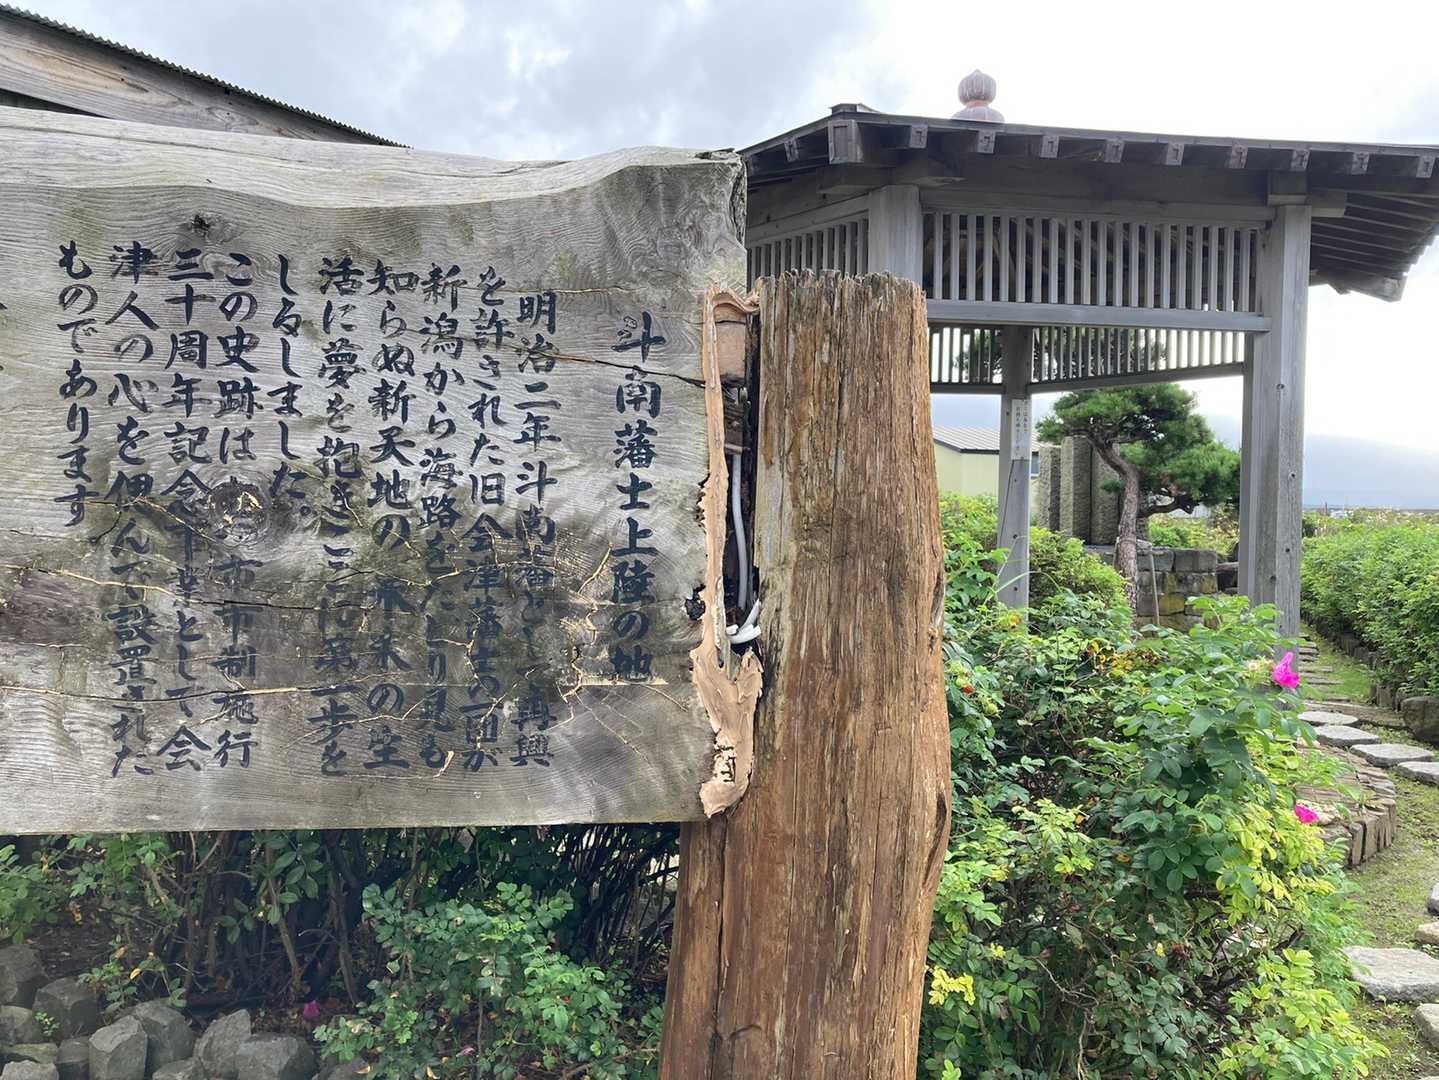 斗南藩士上陸の地
明治二年斗南藩として再興
を許された旧会津藩士の一団が
新潟から海路をたどり見も
知らぬ新天地の 永末の生
活に夢を抱きここに第一歩を
しるしました。
この史跡は 市市制施行
三十周年記念事業として会
津人の心を偲んで設置された
ものであります